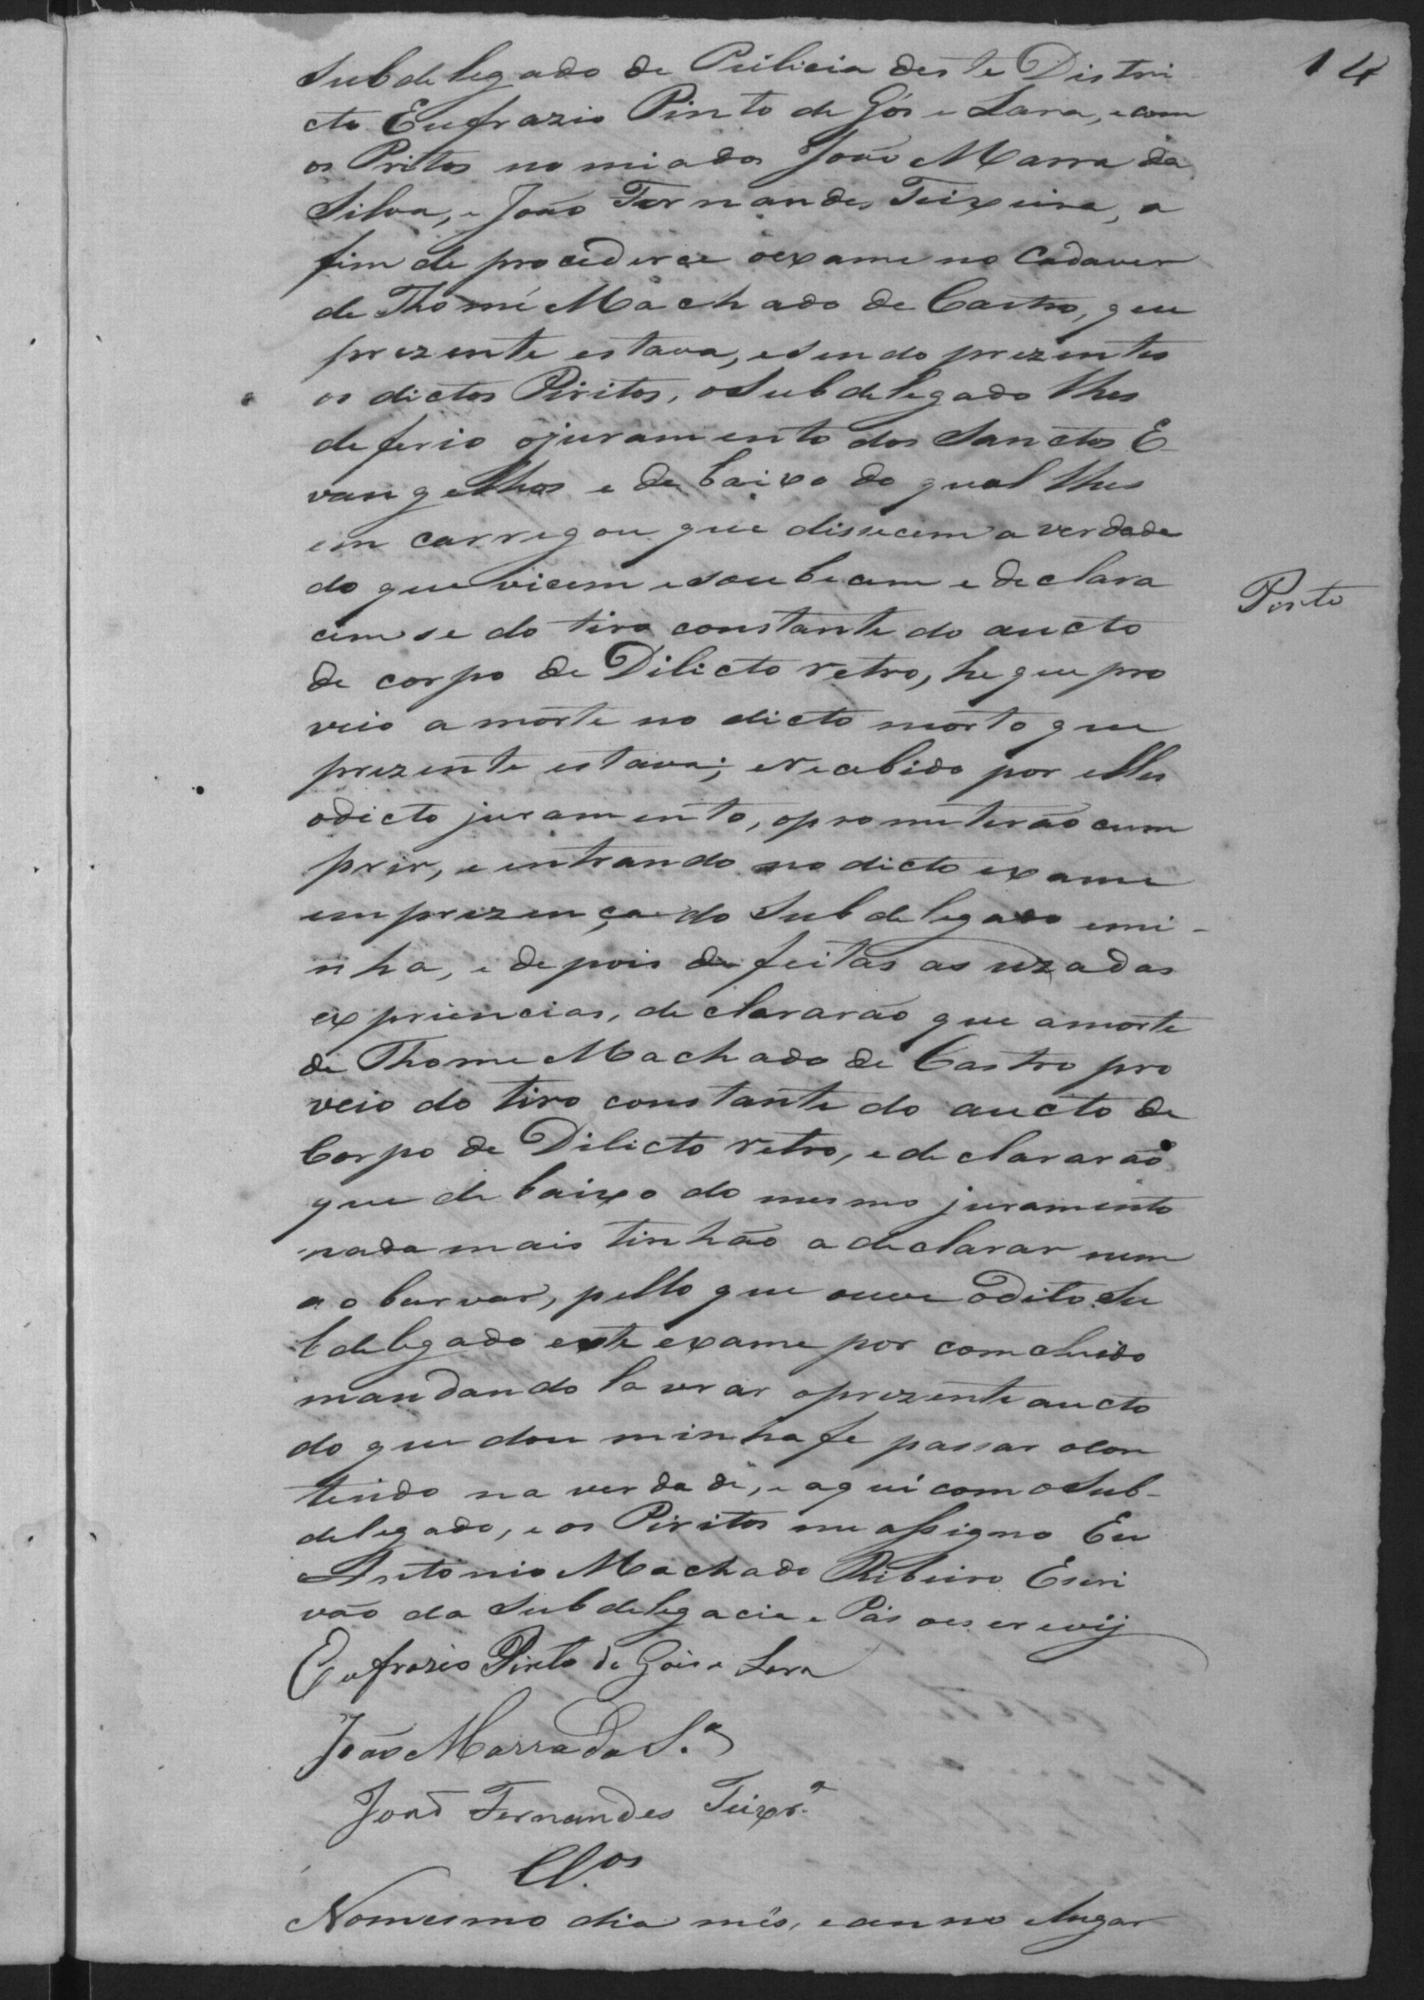 14
Subdelegado de Pulicia deste Distri
cto Eufrazio Pinto de Góes e Lara, e com
os Pritos nomiados João Marra da
Silva, e João Fernandes Teixeira, a
fim de procederce oexame no Cadaver
de Thomé Machado de Castro, que
prezente estava, esendo prezentes
os dictos Piritos, oSubdelegado lhes
deferio ojuramento dos Sanctos E
vangelhos e debaixo do qual lhes
encarregou que dissecem a verdade
do que vicem esoubecem e declara
cem se do tiro constante do aucto
Porto
de corpo de Dilicto retro, he que pro
veio a morte no dicto morto que
prezente estava; erecebido por elles
odicto juramento, oprometerão cum
prir, e entrando no dicto exame
emprezença do Subdelegado emi-
nha, e depois de feitas as uzadas
expriencias, declararão que amorte
de Thome Machado de Castro pro
veio do tiro constante do aucto de
Corpo de Dilicto retro, e declararão
que debaixo do mesmo juramento
nada mais tinhão a declarar nem
a o burvar, pello que ouve odito Su
bdelegado este exame por comcluido
mandando lavrar oprezente aucto
do que dou minha fe passar ocon
teudo na verdade, e aqui com oSub-
delegado, e os Piritos me assigno Eu
Antonio Machado Ribeiro Escri
vão da Subdelegacia e Pás oescrevij
Eufrazio Pinto de Góis e Lara
João Marra da S.ª
João Fernandes Teixr.ª
Cl.os
Nomesmo dia mês, eanno elugar